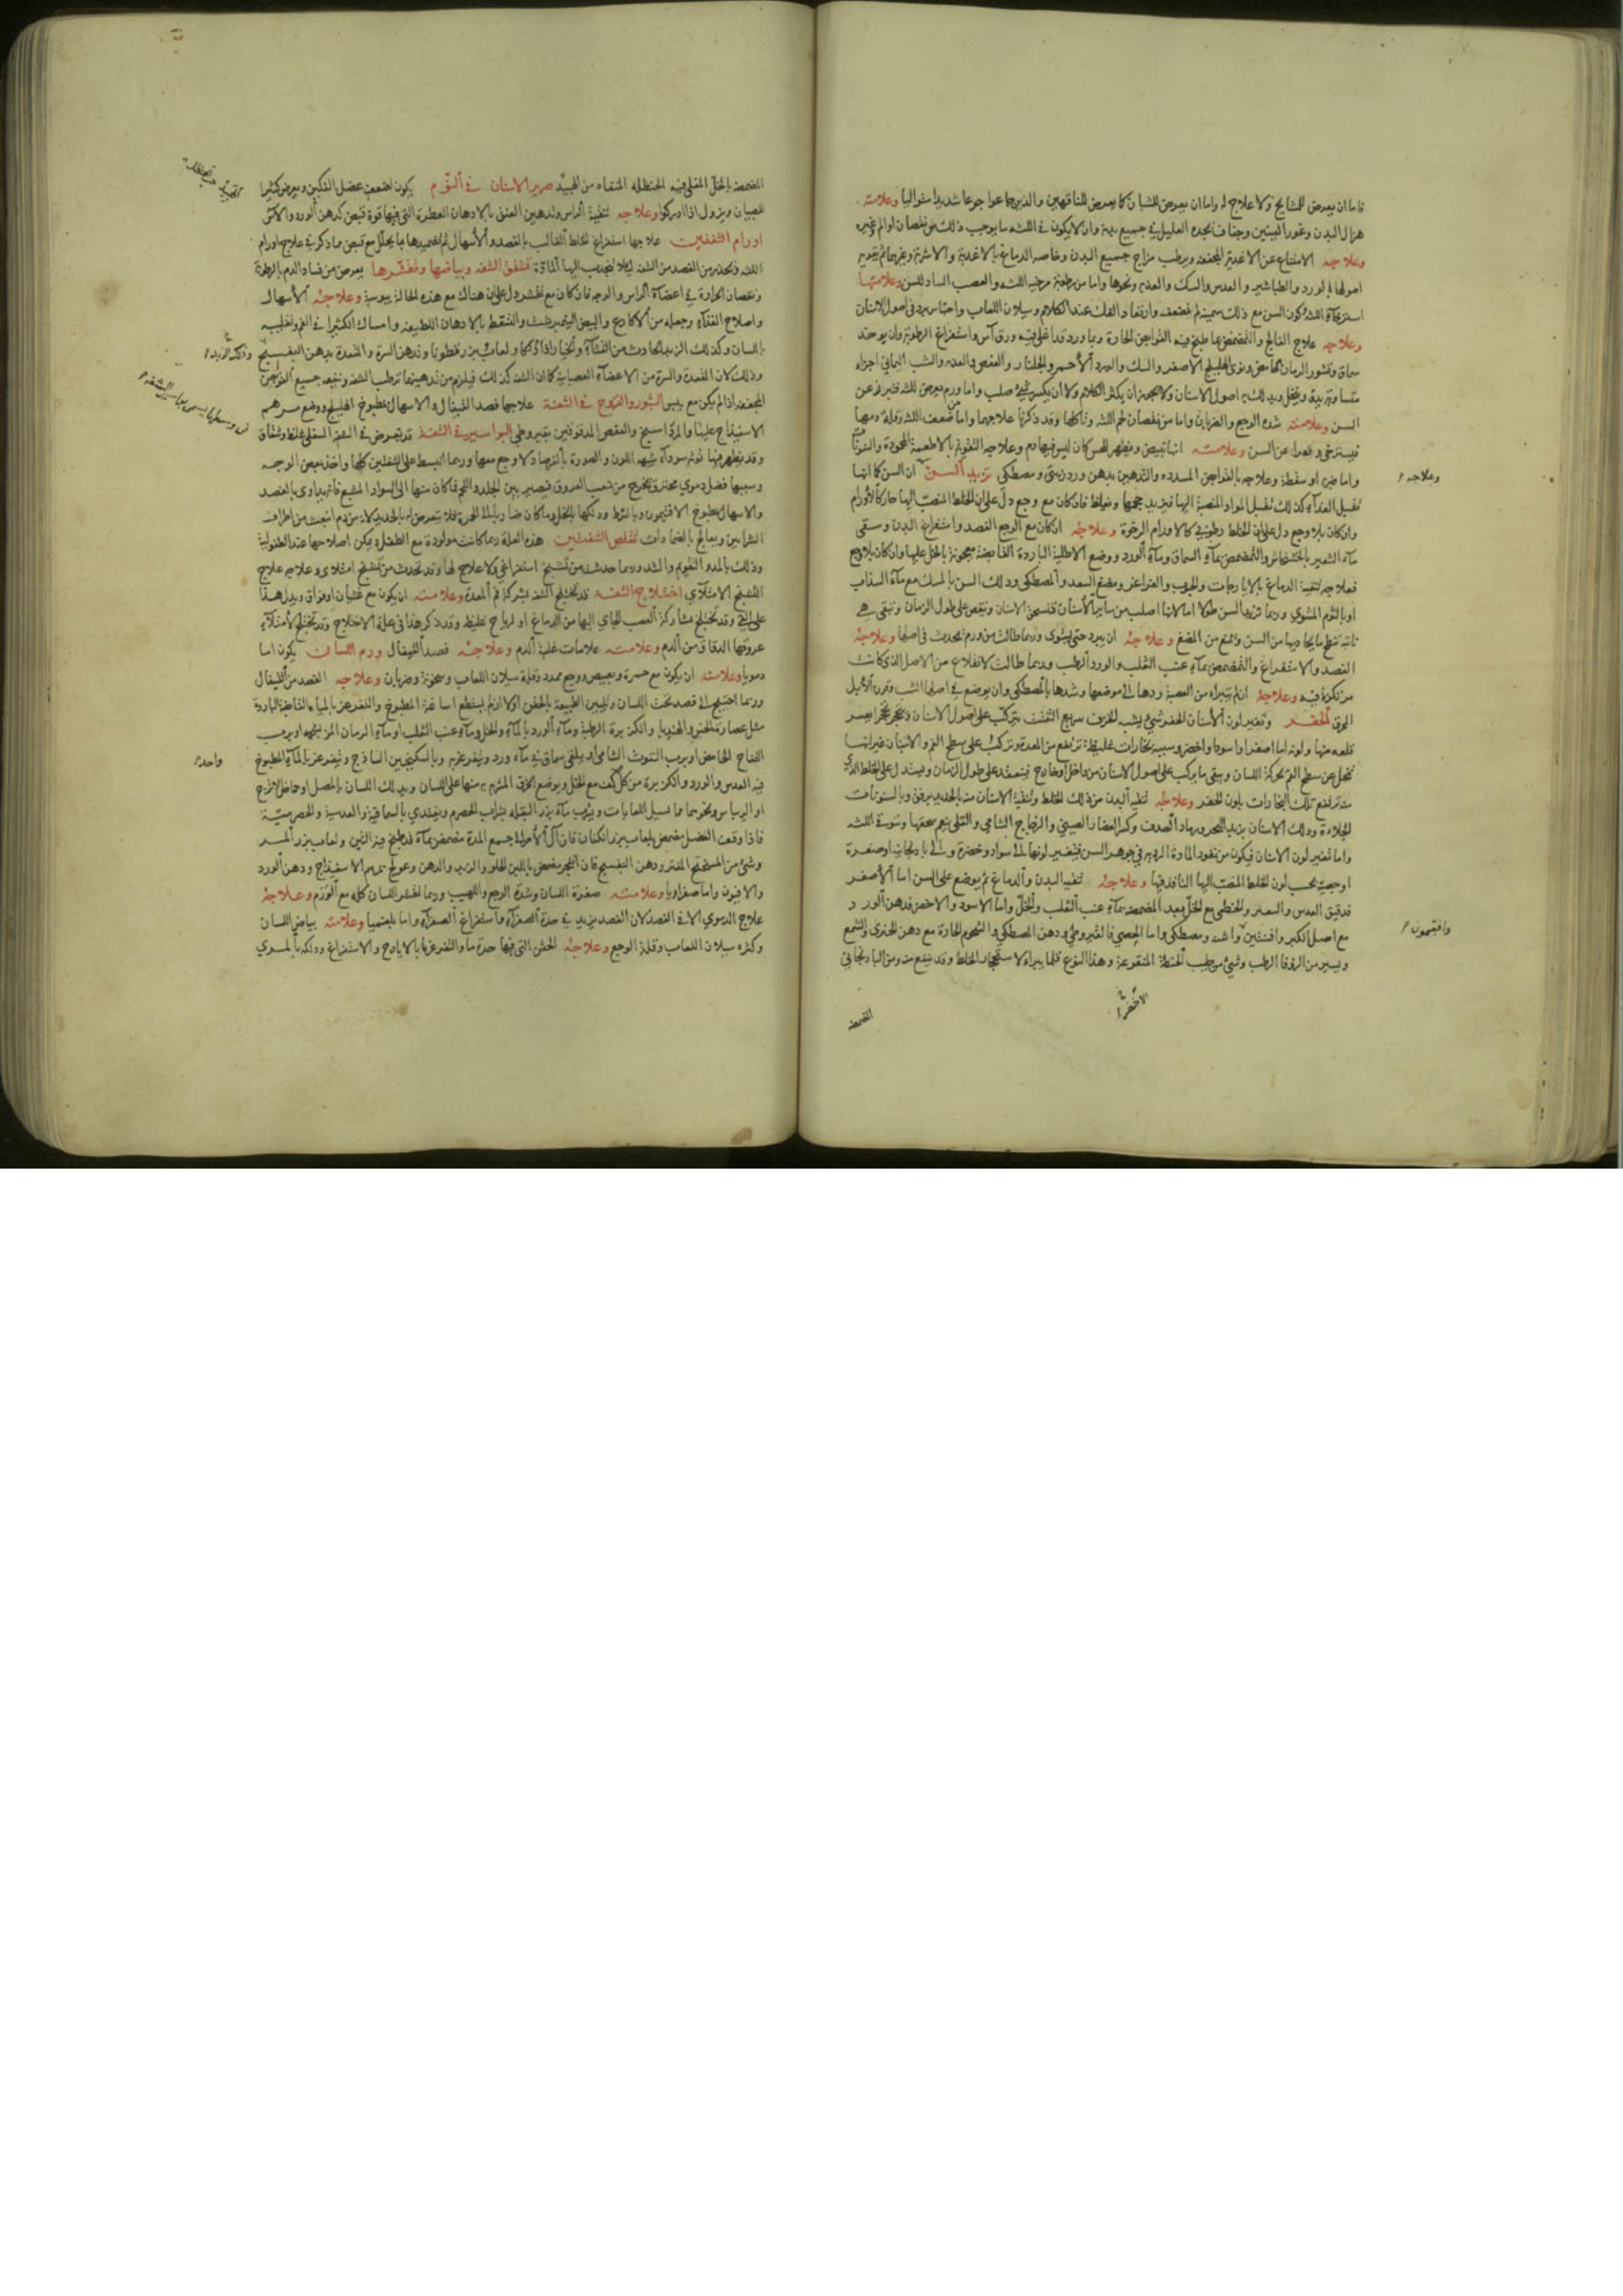 فاما ان يعرض للمشايخ ولا علاج له واما ان يعرض للشبان كما يعرض للناقهين والذين جاعوا جوعا شديدا متواليا وعلامته
هزال البدن وغور العينين وجفاف يجده العليل في جميع بدنه وان لا يكون في اللثه ما يوجب ذلك من نقصان او الم وغيره
وعلاجه الامتناع عن الاغذية المجففه وترطيب مزاج جميع البدن وخاصه الدماغ بالاغذية والاشربة وغيرهما ثم تقوية
اصولها بالورد والطباشير والعدس والسك والعدبه ونحوها واما من رطوبة مرخية اللثه والعصب الساد للسن وعلامتها
استرخاء اللثه وكون السن مع ذلك سمينة لم تضعف وارتفاع الفك عند الكلام وسيلان اللعاب واحتباس برد في اصول الاسنان
وعلاجه علاج الفالج والتمضمض بما طبخ فيه القوابض الحارة وبماء ورد قد اغلي فيه ورق آس واستفراغ الرطوبة وان يوخذ
سماق وقشور الرمان الحامض ونوى الهليلج الاصفر والسك والورد الأحمر والجلنار والعفص والعدبه والشب اليماني اجزاء
متساوية يدق وينخل ويدلك به اصول الاسنان ولا يجوز ان يكثر الكلام ولا ان يكسر شيئ صلب واما ورم يعرض للثه فتبرز عن
السن وعلامته شدة الوجع والضربان واما من نقصان لحم اللثه وتأكلها وقد ذكرنا علاجهما واما من ضعف اللثه وقلة دمها
فيسترخي وتتعرا عن السن وعلامته انها تبيض ويظهر للحس كان ليس فيها دم وعلاجه التقويم بالاطعمة المحمودة والسنونات
واما ضربة او سقطة وعلاجه بالقوابض المسدده والتدهين بدهن ورد زيتي ومصطكي تزيد السن ان السن كما انها
تقبل الغذاء كذلك تقبل المواد المنصبة اليها فيزيد حجمها ويغلظ فان كان مع وجع دل على ان الخلط المنصب اليها حار كالأورام
وان كان بلا وجع دل على ان الخلط رطوبي كالاورام الرخوة وعلاجه ان كان مع الوجع الفصد واستفراغ البدن وسقي
ماء الشعير بالخشخاش والتمضمض بماء السماق وماء الورد ووضع الاطلية الباردة القابضة معجونة بالخل عليها وان كان بلا وجع
فعلاجه تنقية الدماغ بالايارجات والحبوب والغراغر ومضغ السعد والمصطكي ودلك السن بالمسك مع ماء السذاب
او بالثوم المشوي وربما تزيد السن طولا اما لانها اصلب من سائر الأسنان فتسحق الاسنان وتنقص على طول الزمان وتبقى هي
ناتية تنطح ما يحاذيها من السن وتمنع من المضغ وعلاجه ان يبرد حتى يستوي وربما طالت من ورم يحدث في اصلها وعلاجه
الفصد والاستفراغ والتمضمض بماء عنب الثعلب والورد الرطب وربما طالت لانقلاع من الاصل الذي كانت
مركوزة فيه وعلاجه ان لم تتبراه من العصبة ردها الى موضعها وشدها بالمصطكي وان يوضع في اصلها الشب وقرون الأيل
المحرق الحفر وتغير لون الأسنان الحفر شيئ يشبه الخزف سريع التفتت يتركب على اصول الاسنان ويتحجر تحجرا يعسر
قلعه منها ولونه اما اصفر او اسود او اخضر وسببه بخارات غليظة ترتفع من المعدة وتركب على سطح الفم والاسنان غير انها
تنحل عن سطح الفم بحركة اللسان ويبقى ما يركب على اصول الاسنان من داخل او خارج فينعقد على طول الزمان ويستدل على الخلط الذي
منه ترتفع تلك البخارات بلون الحفر وعلاجه تنقيه البدن من ذلك الخلط وتنقية الاسنان منه بالحديد برفق وبالسنونات
الجلاءة ودلك الاسنان بزبد البحر ورماد الصدف وكسر الغضار الصيني والزجاج الشامي والقلى ينعم سحقها وتسوية اللثه
واما تغير لون الاسنان فيكون من نفوذ المادة الرديه في جوهر السن فيتغير لونها الى سواد وخضرة والى باذنجانيه او صفرة
او جصية بحسب لون الخلط المنصب اليها النافذ فيها وعلاجه تنقيه البدن والدماغ ثم يوضع على السن اما الأصفر
فدقيق العدس والسعتر والخطمي مع الخل بعد المضمضة بماء عنب الثعلب والخل واما الاسود والاخضر فدهن الورد
مع اصل الكبر وافسنتين واشنه ومصطكي واما الجصي فالقيروطي ودهن المصطكي والشحوم الحارة مع دهن الخيري والشمع
ويسير من الزوفا الرطب وشيئ من طيب الحنطة المنقوعة وهذا النوع قلما يبراه لاستحجار الخلط وقد ينفع منه ومن الباذنجاني
الاخضر
وعلاجه
وافتيمون
المضمضة
المضمضة بالخل المغلى فيه الحنظله المنقاه من لحبيته صرير الاسنان في النوم يكون لضعف عضل الفكين ويعرض كثيرا
للصبيان ويزول اذا ادركوا وعلاجه تنقية الراس وتدهين العنق بالادهان العطرة التي فيها قوة قبض كدهن الورد والآس
اورام الشفتين علاجها استفراغ الخلط الغالب بالفصد والأسهال ثم تضميدها بما يحلل مع قبض مما ذكر في علاج اورام
اللثه ويحذر من الفصد من الشفه ليلا تنجذب اليها المادة تشقق الشفه وبياضها وتقشرها يعرض من فساد الدم بالرطوبة
ونقصان الحرارة في اعضاء الراس والوجه فان كان مع تقشر دل على ان هناك مع هذه الحالة يبوسة وعلاجه الأسهال
واصلاح الغذاء وجعله من الاكارع والبيض النيمبرشت والتنقط بالادهان اللطيفه وامساك الكثيرا في الفم وتقليبه
باللسان وكذلك الزبد الحادث من القثاء والخيار اذا دلكا ولعاب بزرقطونا وتدهن السرة والمقعدة بدهن البنفسج
وذلك لان المقعدة والسرة من الاعضاء العصبانية كما ان الشفه كذلك فيلزم من تدهينهما ترطب الشفه وينفعه جميع القوابض
المجففه اذا لم يكن مع يبس البثور والقروح في الشفة علاجها فصد القيفال والاسهال بمطبوخ الهليلج ووضع مرهم
الاسفيداج عليها والمرداسنج والعفص المدقوقين بقيروطي البواسير في الشفة قد يعرض في الشفه السفلى غلظ وشقاق
وقد يظهر فيها توثه سوداء شبيه اللون والصورة بالفرصاد لا وجع معها وربما انبسط على الشفتين كلها واخذ بعض الوجه
وسببها فضل دموي محترق يخرج من شعب العروق فيصير بين الجلد واللحم فما كان منها الى السواد المشبع فانه يداوى بالفصد
والاسهال بمطبوخ الافتيمون وبالشرط ودلكها بالخل وما كان ضاربا الى الحمرة فلا يتعرض له بالحديد لانه من دم انبعث من اطراف
الشرايين ويعالج بالضمادات تقلص الشفتين هذه العلة ربما كانت مولودة مع الطفل ويمكن اصلاحها عند الطفولية
وذلك بالمد والتقويم والشد وربما حدثت من تشنج استفراغي ولا علاج لها وقد تحدث من تشنج امتلائي وعلاجه علاج
التشنج الامتلائي اختلاج الشفة قد تختلج الشفه بشركة فم المعدة وعلامته ان يكون مع غثيان او فواق ويدل هذا
على القي وقد تختلج بمشاركة العصب الجائي اليها من الدماغ او لرياح غليظه وقد ذكر هذا في علة الاختلاج وقد تختلج لأمتلاء
عروقها الدقاق من الدم وعلامته علامات غلبة الدم وعلاجه فصد القيفال ورم اللسان يكون اما
دمويا وعلامته ان يكون مع حمرة وتعبيص ووجع ممدد وقلة سيلان اللعاب وسخونة وضربان وعلاجه الفصد من القيفال
وربما احتيج الى فصد تحت اللسان وتليين الطبيعة بالحقن اولا ان لم يستطع اساغة المطبوخ والتغرغر بالمياه القابضة الباردة
مثل عصارة الخس والهندبا والكزبرة الرطبة وماء الورد بالماء والخل وماء عنب الثعلب او ماء الرمان المز بشحمه او برب
التفاح الحامض او برب التوث الشامي او يلقى سماق في ماء ورد ويتغرغر به وبالسكنجبين الساذج ويتغرغر بالماء المطبوخ
فيه العدس والورد والكزبرة من كل كف مع الخل ويوضع الخرق المشربه منها على اللسان ويدلك اللسان بالمصل او حماض الاترج
او الريباس ونحوهما مما يسيل اللعابات ويشرب ماء بزر البقله بشراب الحصرم ويغتذي بالسماقية والعدسية والحصرمية
فاذا وقف الفضل مضمض بلعاب بزر الكتان فان آل الأمر الى جمع المدة مضمض بماء قد طبخ فيه التين ولعاب بزر المر
وشيء من الفستق المقشر ودهن البنفسج فان انفجر مضمض باللبن الحلو والزبد والدهن وعولج بمرهم الاسفيداج ودهن الورد
والافيون واما صفراويا وعلامته صفرة اللسان وشدة الوجع واللهيب وربما تقشر اللسان كله مع الورم وعلاجه
علاج الدموي الا في الفصد لان الفصد يزيد في حدة الصفراء واستفراغ الصفراء واما بلغميا وعلامته بياض اللسان
وكثره سيلان اللعاب وقلة الوجع وعلاجه الحقن التي فيها حدة ما والتغرغر بالايارج والاستفراغ ودلكه بالمري
وذلكه الزبد
واحد